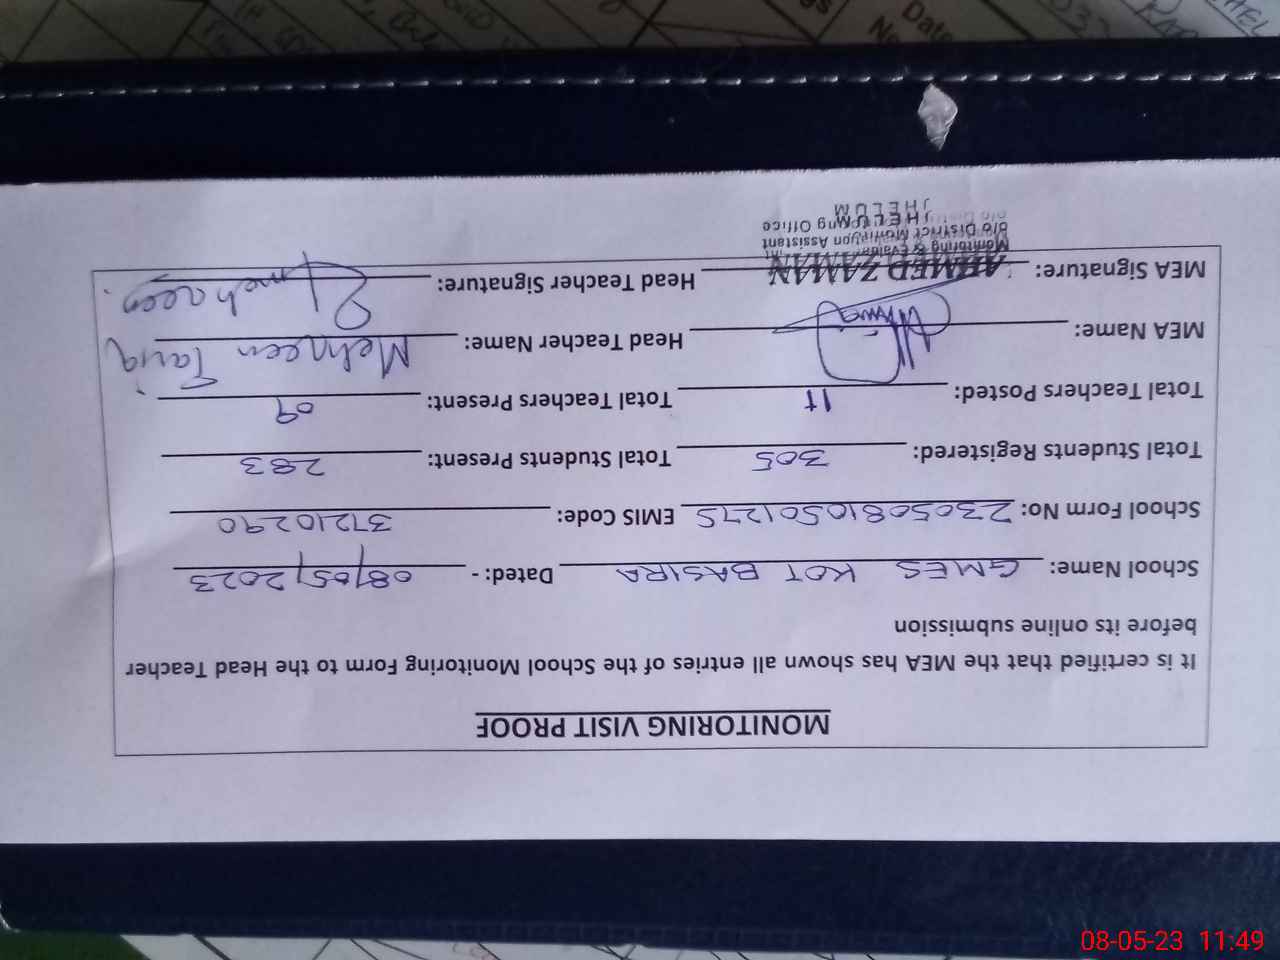 MONITORING VISIT PROOF
It is certified that the MEA has shown all entries of the School Monitoring Form to the Head Teacher
before its online submission
School Name: GMES KOT BASIRA Dated: - 08/05/2023
School Form No: 23050810501275 EMIS Code: 37210290
Total Students Registered: 305 Total Students Present: 283
Total Teachers Posted: 11 Total Teachers Present: 09
MEA Name: Head Teacher Name: Mehreen Tariq
MEA Signature: AHMED ZAMAN Head Teacher Signature: Mehreen
Monitoring & Evaluation Assistant
o/o District Monitoring Office
JHELUM
JHELUM
08-05-23 11:49
Date